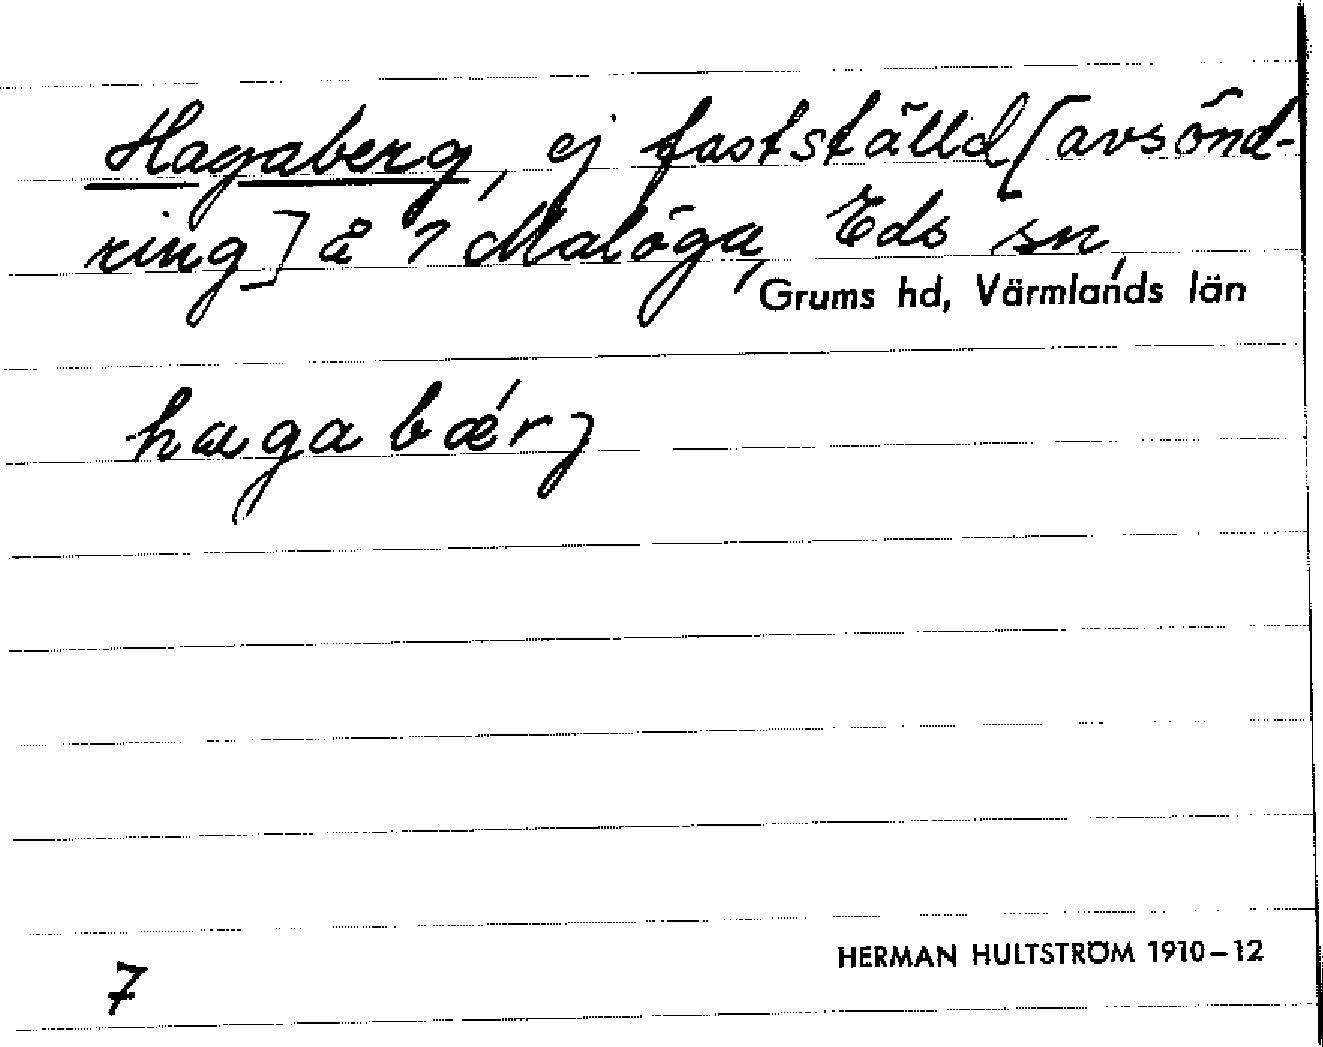 Hagaberg, ej fastställd [avsönd-
ring] å 7 Malöga, Eds sn,
Grums hd, Värmlands län
hagabǽrj
7
HERMAN HULTSTRÖM 1910–12